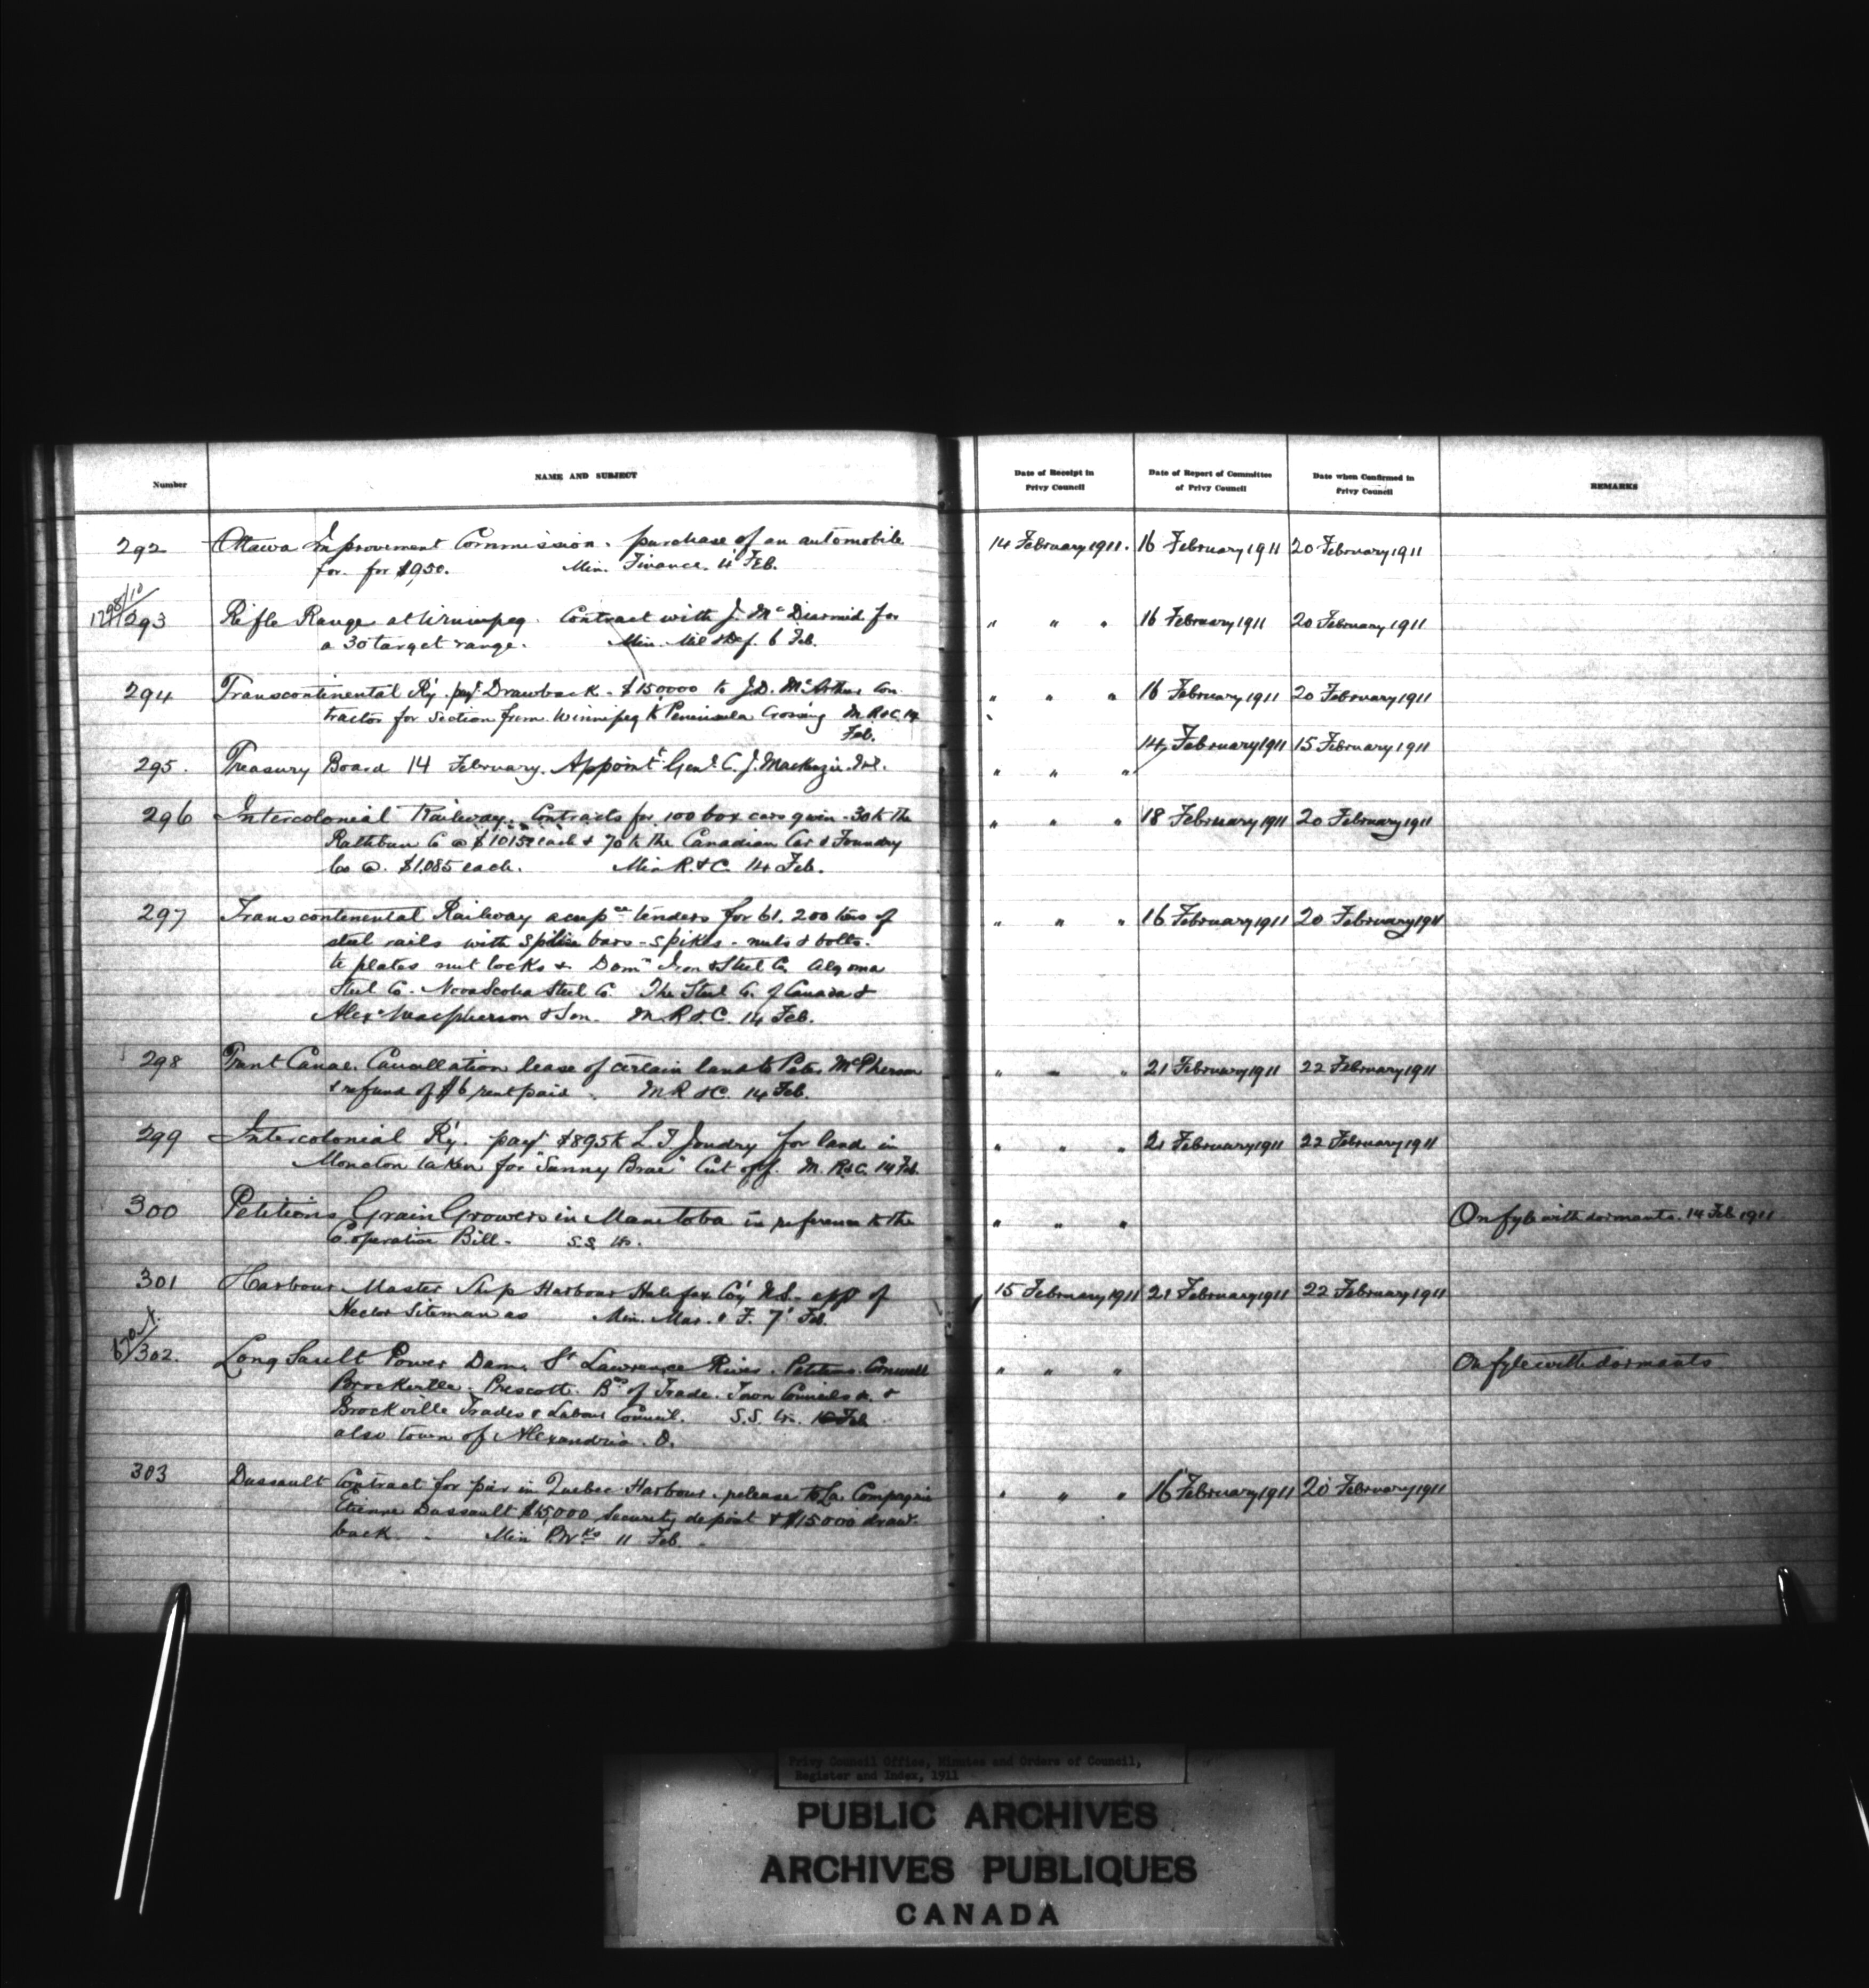 Number
NAME AND SUBJECT
Date of Receipt in Privy Council
Date of Report of Committee of Privy Council
Date when Confirmed in Privy Council
REMARKS
292 Ottawa Improvement Commission. purchase of an automobile 14 February 1911. 16 February 1911 20 February 1911
for. for $950. Min. Finance. 4 Feb.
293 Rifle Range at Winnipeg. Contract with J. McDiarmid for " " " 16 February 1911 20 February 1911
a 30 target range. Min. Mil & Def. 6 Feb.
294 Transcontinental Ry. payt Drawback - $150000 to J.D. McArthur Con " " " 16 February 1911 20 February 1911
tractor for section from Winnipeg to Peninsula Crossing M.R&C. 14
Feb.
295. Treasury Board 14 February. Appointt Genl. C. J. Mackenzie " " " 14 February 1911 15 February 1911
296 Intercolonial Railway. Contracts for 100 box cars given - 30 to the " " " 18 February 1911 20 February 1911
Rathbun Co @ each & 70 to the Canadian Car & Foundry
Co @. $1,085 each. Min R.&C. 14 Feb.
297 Transcontinental Railway accepce tenders for 61,200 tons of " " " 16 February 1911 20 February 1911
steel rails with splice bars - spikes - nuts & bolts.
tie plates nut locks & Domn Iron & Steel Co. Algoma
Steel Co. Nova Scotia Steel Co. The Steel Co. of Canada &
Alex Macpherson & Son. M.R.&.C. 14 Feb.
298 Trent Canal. Cancellation lease of certain land to Peter McPherson " " " 21 February 1911 22 February 1911
& refund of $6 rent paid. M.R.&C. 14 Feb.
299 Intercolonial Ry. payt $895 to L. T. Joudry for land in " " " 21 February 1911 22 February 1911
Moncton taken for "Sunny Brae" Cut off. M. R&C. 14 Feb.
300 Petitions Grain Growers in Manitoba in reference to the " " " On fyle with dormants. 14 Feb 1911
Cooperative Bill - S.S.
301 Harbour Master Ship Harbour Halifax Coy N.S. - appt of 15 February 1911 21 February 1911 22 February 1911
Hector Siteman as Min. Mar. & F. 7 Feb.
302. Long Sault Power Dam. St Lawrence River. Petitions. Cornwall " " " On fyle with dormants
Brockville. Prescott. Bds of Trade. Town Councils &
Brockville Trades & Labour Council. S.S.
also town of Alexandria. O.
303 Dussault Contract for pier in Quebec Harbour. release to La Compagnie " " " 16 February 1911 20 February 1911
Etienne Dussault $15,000 security deposit & $15000 draw-
back. Min P.Wks 11 Feb.
Privy Council Office, Minutes and Orders of Council,
Register and Index, 1911
PUBLIC ARCHIVES
ARCHIVES PUBLIQUES
CANADA